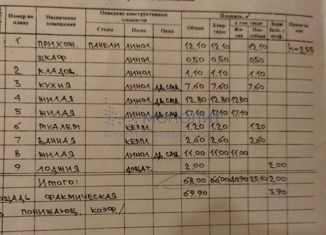 Номер на плану Назначение помещения Описание конструктивных элементов Площадь, м² в том числе
Стены Полы Окна Общая
1 ПРИХОЖ. ПАНЕЛИ ЛИНОЛ. 12,10 12,10 12,10 h-2.55
ШКАФ ЛИНОЛ. 0,50 0,50 0,50
2 КЛАДОВ. ЛИНОЛ. 1,10 1,10 1,10
3 КУХНЯ ЛИНОЛ. 7,60 7,60 7,60
4 ЖИЛАЯ ЛИНОЛ. 12.80 12.80 12.80
5 ЖИЛАЯ ЛИНОЛ. 17.10 17.10 17.10
6 ТУАЛЕТ КЕРАМ. 1,20 1,20 1,20
7 ВАННАЯ КЕРАМ. 2,60 2,60 2,60
8 ЖИЛАЯ ЛИНОЛ. 11.00 11.00 11.00
9 ЛОДЖИЯ ДОЩАТ. 2.00 2.00
Итого: 68.00 66.00 40.90 25.10 2.00
ПЛОЩАДЬ ФАКТИЧЕСКАЯ 69,90 3,90
ПОНИЖАЮЩ. КОЭФ/
МОНОЛИТ